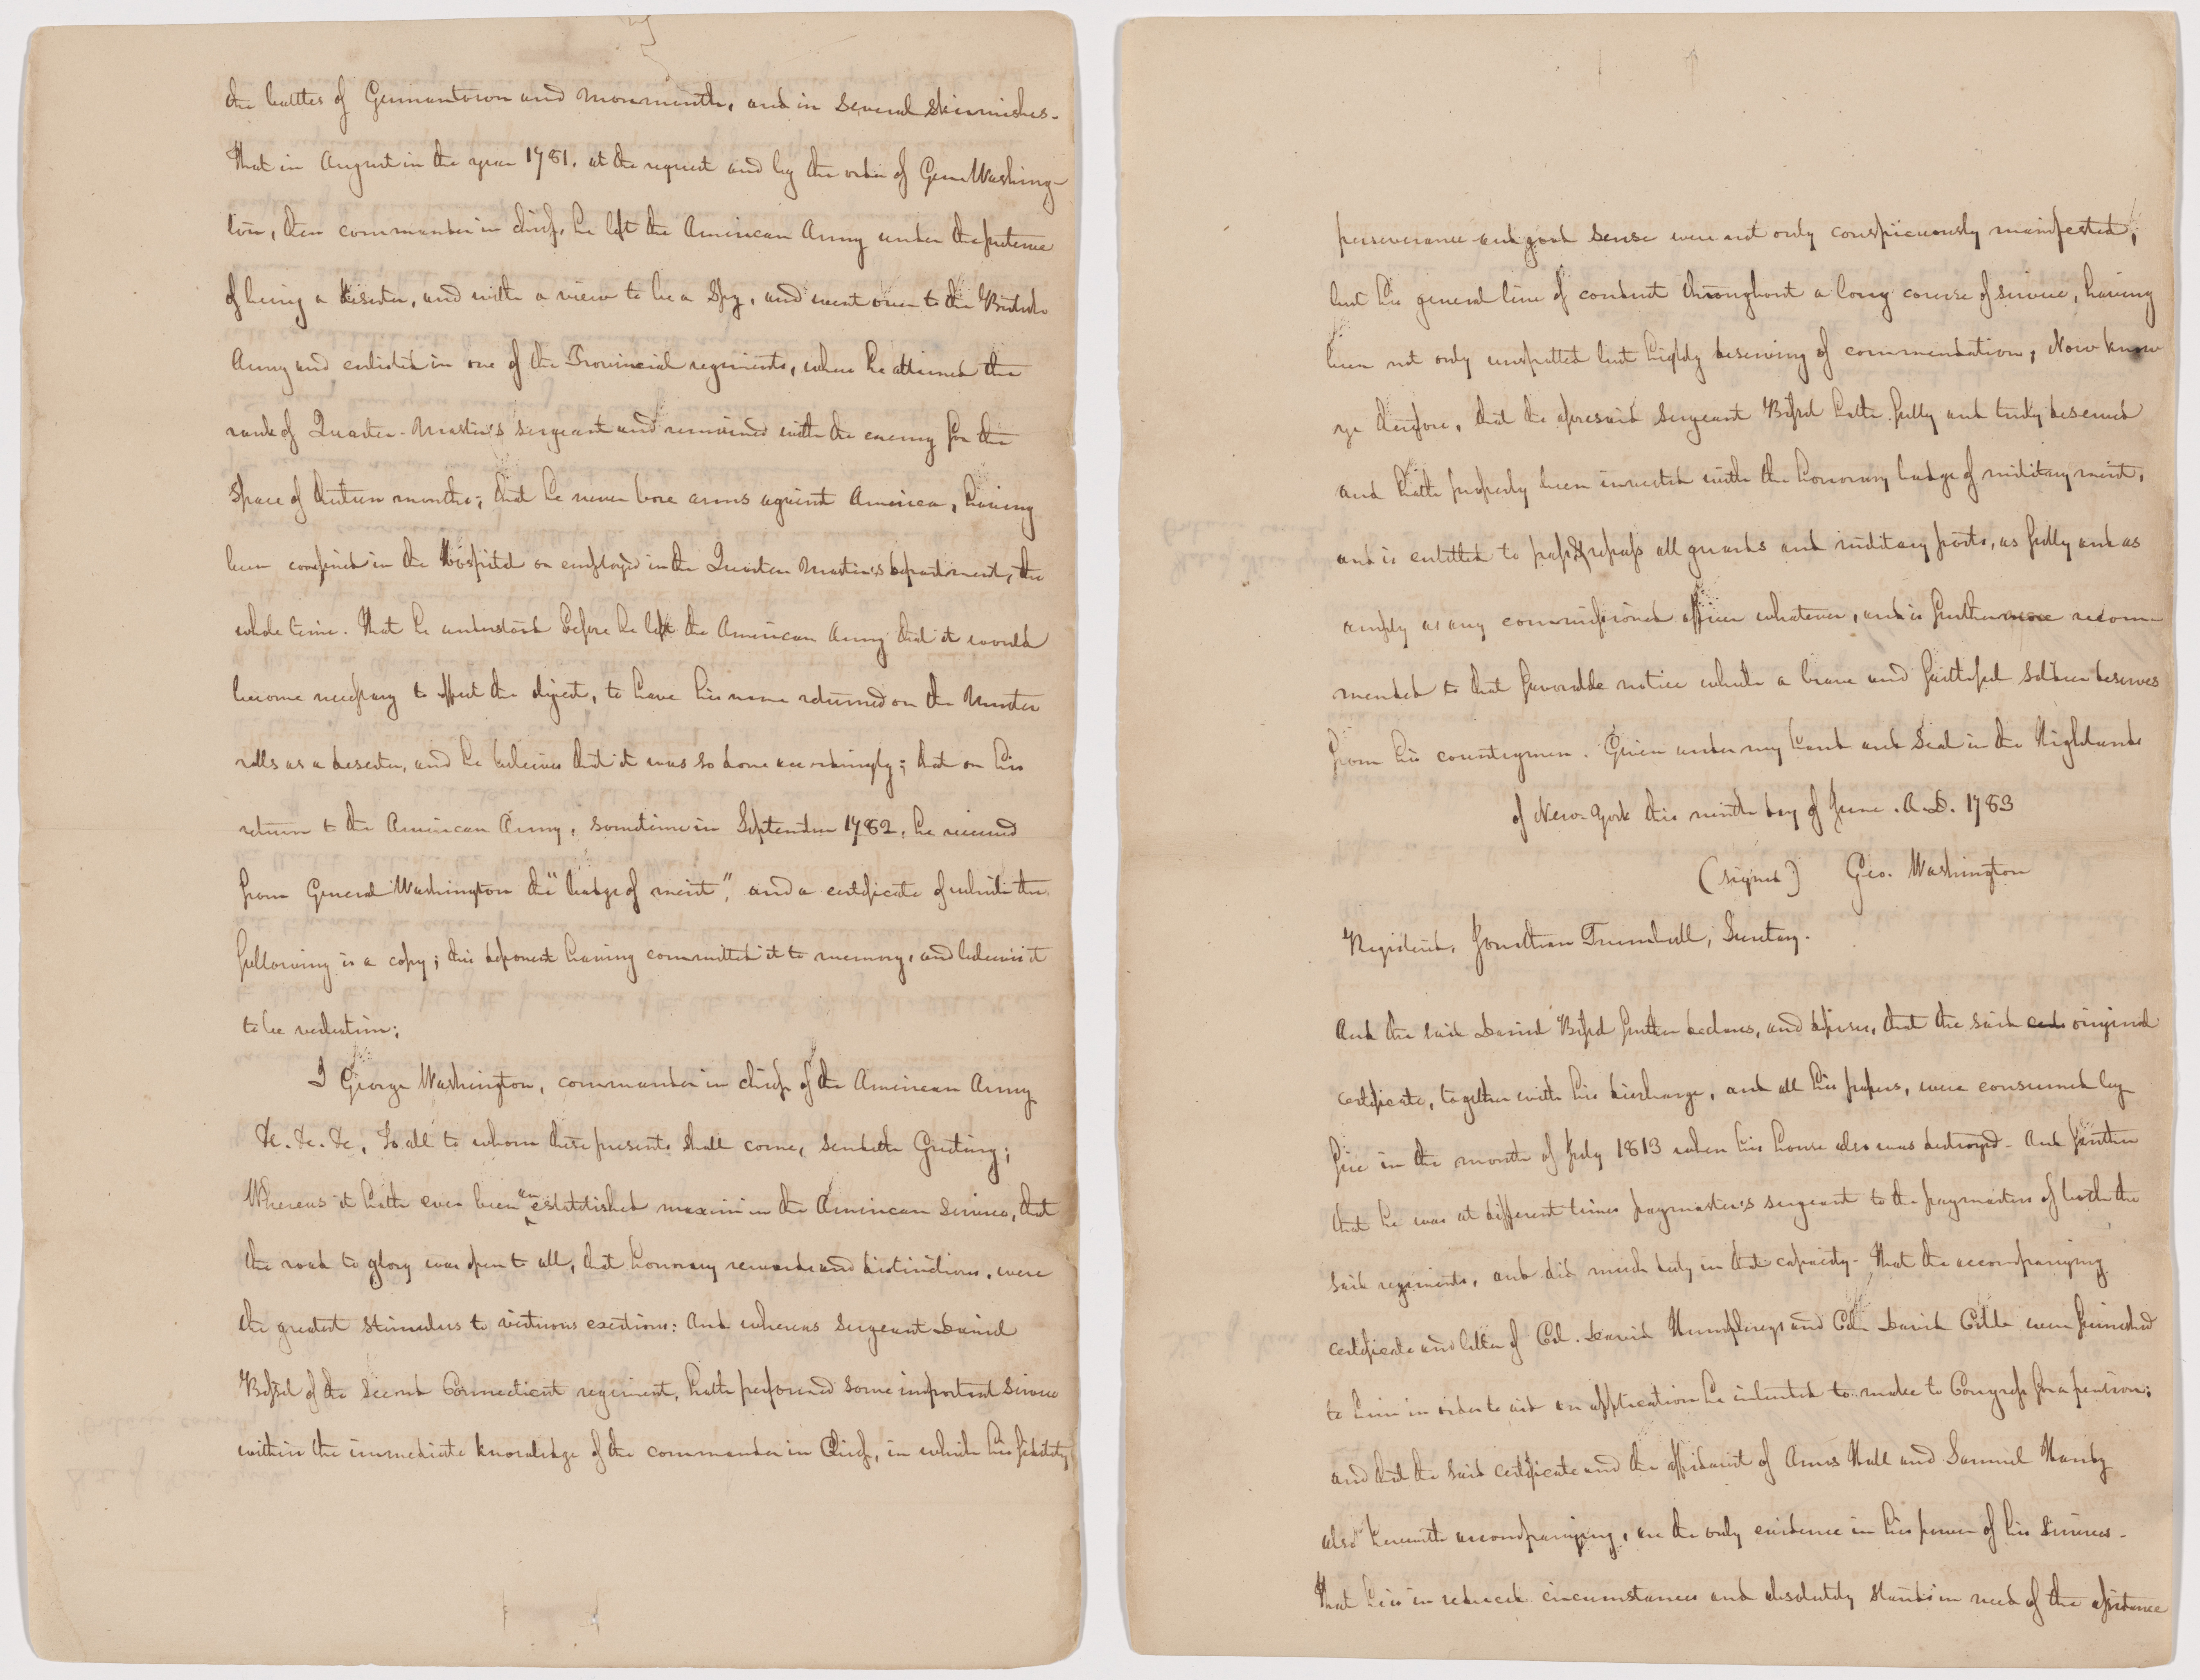 the battles of Germantown and Monmouth, and in several skirmishes.
That in August in the year 1781, at the request and by the order of Gen. Washing-
ton, then commander in chief, he left the American Army under the pretence
of being a deserter, and with a view to be a Spy, and went over to the British
Army and enlisted in one of the Provincial regiments, where he attained the
rank of Quarter-Master's sergeant and remained with the enemy for the
space of thirteen months; that he never bore arms against America, having
been confined in the Hospital or employed in the Quarter Master's department, the
whole time. That he understood before he left the American Army that it would
become necessary to effect the object, to have his name returned on the Muster
rolls as a deserter, and he believes that it was so done accordingly; that on his
return to the American Army, sometime in September 1782, he received
from General Washington the "badge of merit", and a certificate of which the
following is a copy; this deponent having committed it to memory, and believes it
to be verbatim;
I George Washington, commander in chief of the American Army
&c. &c. &c, To all to whom these presents shall come, sendeth Greeting;
Whereas it hath ever been an established maxim in the American Service, that
the road to glory was open to all, that honorary rewards and distinctions, were
the greatest stimulus to virtuous exertions: And whereas Sergeant Daniel
Bissel of the Second Connecticut regiment, hath performed some important Service
within the immediate knowledge of the commander in Chief, in which his fidelity
perseverance and good sense were not only conspicuously manifested,
but his general line of conduct throughout a long course of service, having
been not only unspotted but highly deserving of commendation; Now know
ye therefore, that the aforesaid sergeant Bissel hath fully and truly deserved
and hath properly been invested with the honorary badge of military merit,
and is entitled to pass & repass all guards and military posts, as fully and as
amply as any commissioned officer whatever, and is furthermore recom-
mended to that favorable notice which a brave and faithful soldier deserves
from his countrymen. Given under my hand and Seal in the Highlands
of New-York this ninth day of June. A.D. 1783
(signed) Geo. Washington
Registered, Jonathan Trumbull, Secretary.
And the said Daniel Bissel further declares, and deposes, that the said original
certificate, together with his discharge, and all his papers, were consumed by
fire in the month of July 1813 when his house also was destroyed. And further
that he was at different times paymaster's sergeant to the paymasters of both the
said regiments, and did much duty in that capacity. That the accompanying
certificate and letter of Col. David Humphreys and Col. David Cobb were furnished
to him in order to aid an application he intended to make to Congress for a pension;
and that the said certificate and the affidavit of Amos Hall and Samuel Hanby
also herewith accompanying, are the only evidence in his power of his services.
That he is in reduced circumstances and absolutely stands in need of the assistance